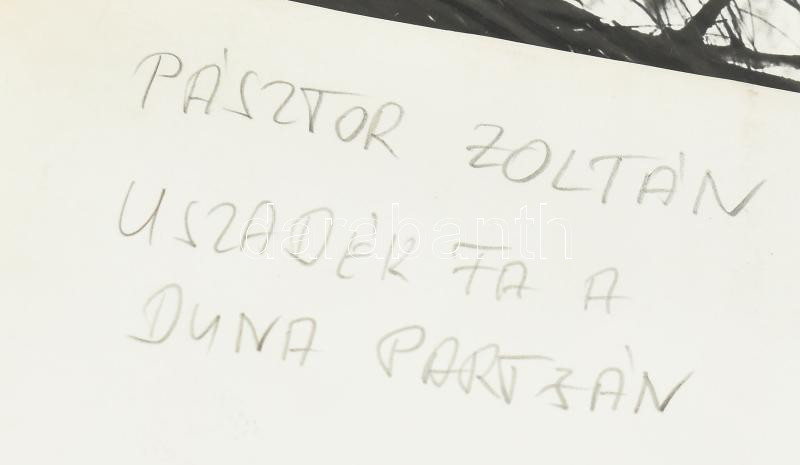 PÁSZTOR ZOLTÁN
USZADÉK FA A
DUNA PARTJÁN
darabanth